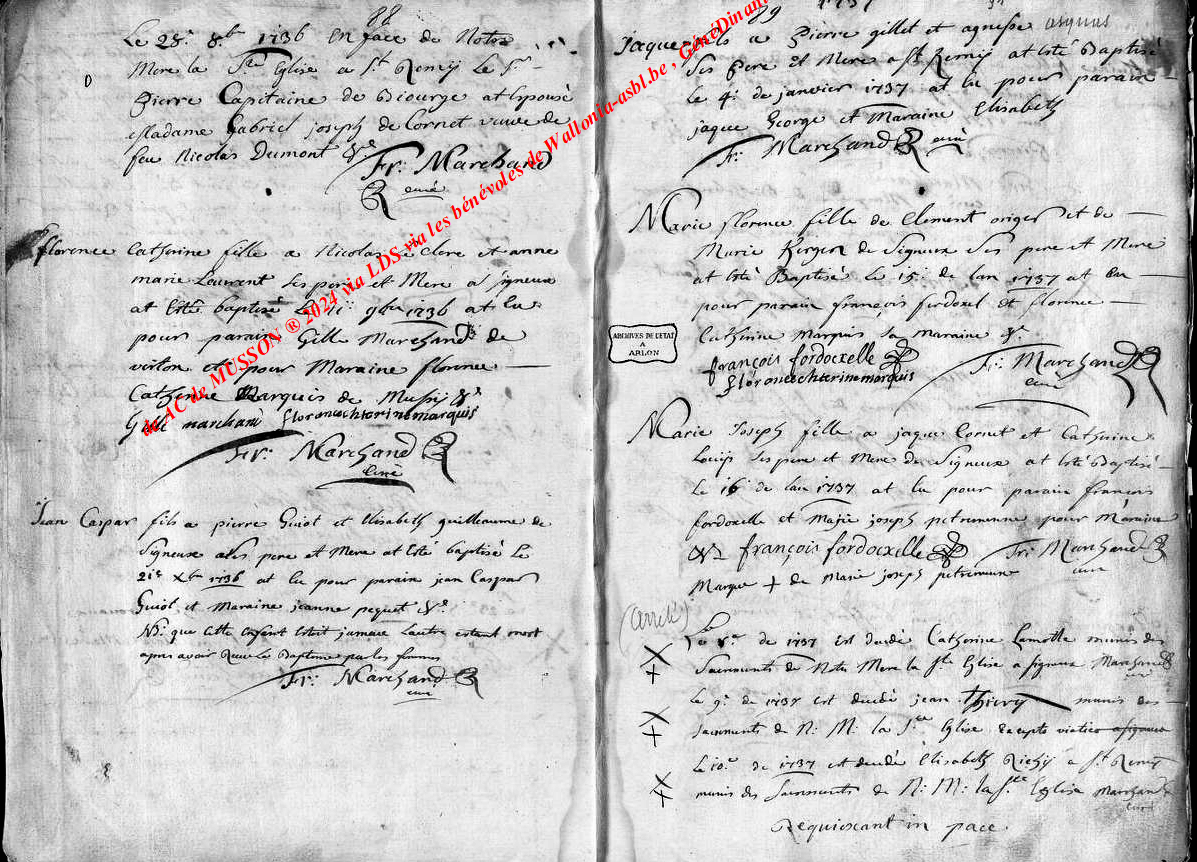 88
Le 28e 8bre 1736 En face de Notre
Mere la Ste Eglise a St Remy Le Sr
Pierre Capitaine de at Epousé
Madame Gabriel joseph de Cornet veuve de
feu Nicolas Dumont &c
Fr: Marchand
curé
florence Catherine fille a Nicolas le Clere et anne
marie Laurent ses pere et Mere a signeux
at Esté baptisé Le 9bre 1736 at Eu
pour parain Gille Marchand de
virton et pour Maraine florence
Catherine Marquis de Mussy &c
Gille marchand floroncechterinemarquis
Fr: Marchand
Curé
Jean Caspar fils a pierre Guiot et Elisabeth guilleaume de
Signeux ses pere et Mere at Esté baptisé Le
21e Xbre 1736 at Eu pour parain jean Caspar
Guiot et Maraine jeanne pequet &c
Nb: que cette Enfant Estoit jumeau Lautre estant mort
apres avoir Receu Le Bapteme par les femmes
Fr: Marchand
curé
89
1737
asquas
Jaque fils a Pierre gillet et agnesse
Ses Pere et Mere a St Remy at Esté Baptisé
Le 4e de janvier 1737 at Eu pour parain
jaque George et Maraine Elisabeth
Fr: Marchand curé
Marie florence fille de Clement origer et de
Marie Kergen de Signeux Ses pere et Mere
at Esté Baptisé Le 15e de lan 1737 at Eu
pour parain françois fordoxel et florence
Catherine Marquis Sa Maraine &c
françois fordoxelle
floroncechterinemarquis
Fr: Marchand
curé
ARCHIVES DE L'ETAT
A
ARLON
Marie Joseph fille a jaque Cornet et Catherine
Louis ses pere et Mere de Signeux at Esté Baptisé
Le 16 de lan 1737 at Eu pour parain francois
fordoxelle et Marie joseph petremenne pour Maraine
&c françois fordocxelle Fr: Marchand
curé
Marque + de Marie joseph petremenne
(arrêté)
Le de 1737 Est decedé Catherine Lamotte munis des
Sacrements de Notre Mere la Ste Eglise a signeux Marchand
curé
Le 9e de 1737 est decedé jean Thiery munis des
Sacrements de N: M: la Ste Eglise Excepté viatico a signeux
Le 10e de 1737 est decedé Elisabeth a St Remy
munis des Sacrements de N: M: la Ste Eglise Marchand
curé
Requiescant in pace
de MUSSON ® 2024 via LDS via les bénévoles de Wallonia-asbl.be , GénéDinant